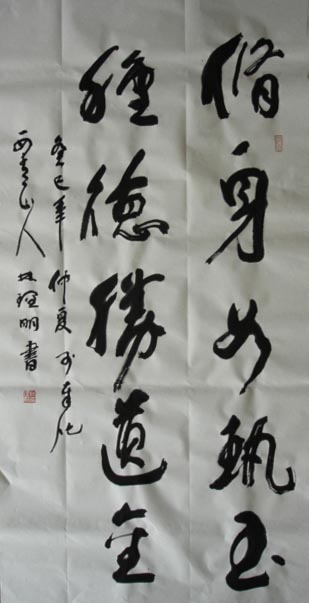 脩身如執玉
種德勝遺金
癸巳年仲夏於奉化
西青山人 林理明書